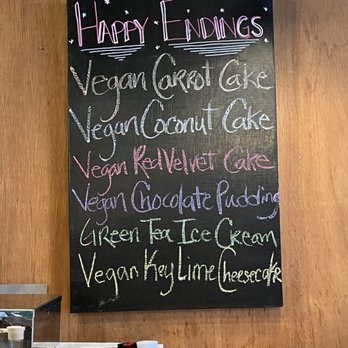 Happy Endings
Vegan Carrot Cake
Vegan Coconut Cake
Vegan Red Velvet Cake
Vegan Chocolate Pudding
Green Tea Ice Cream
Vegan Key Lime Cheesecake